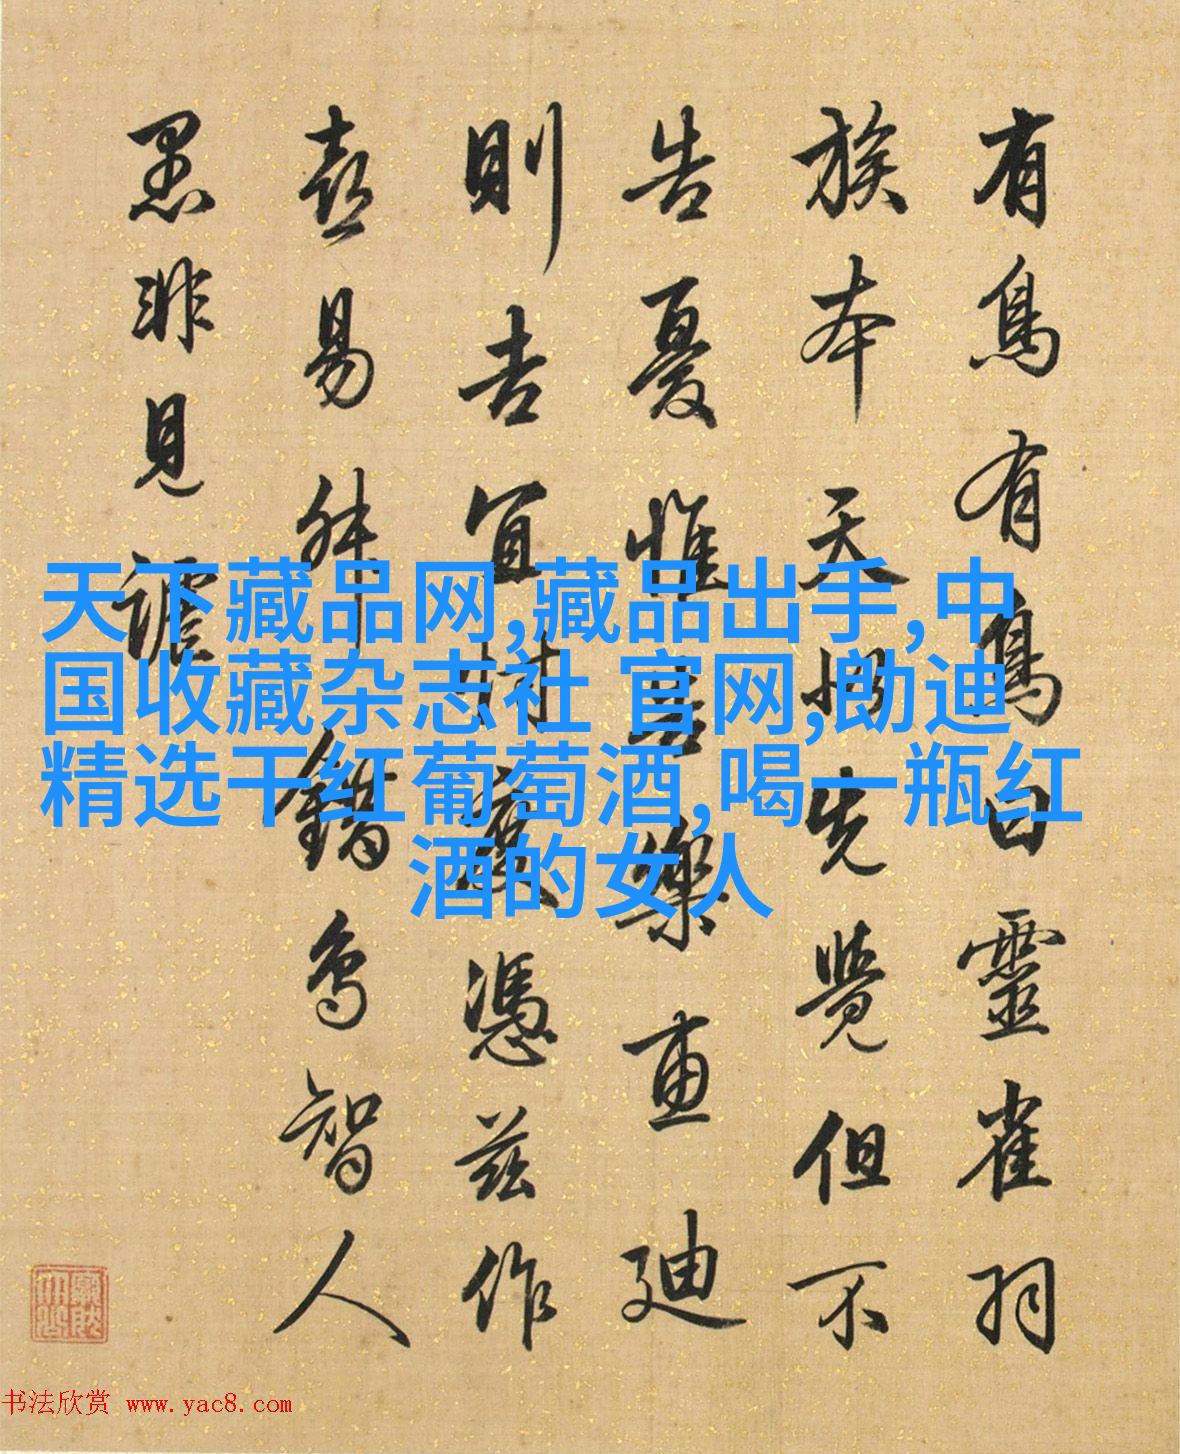 有鳥有鳥曰靈雀羽
族本天先覺但不
告憂惟告樂惠迪
則吉宜憑茲作
喜易錯烏智人
愚非見
天下藏品网,藏品出手,中
国收藏杂志社 官网,勆迪
精选干红葡萄酒,喝一瓶红
酒的女人
书法欣赏 www.yac8.com